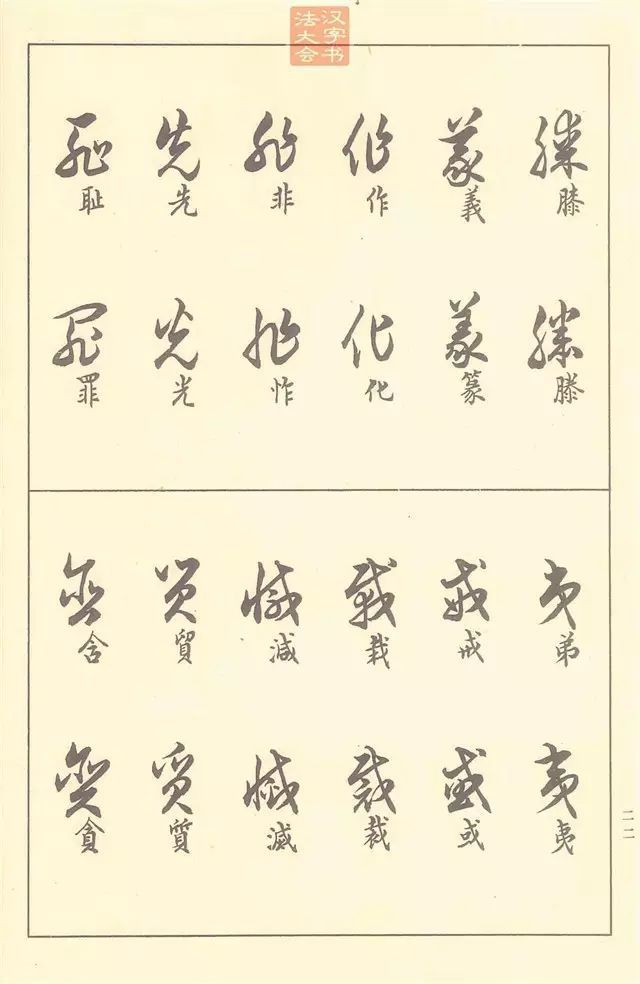 汉字书
法大会
膝 義 作 非 先 耻
滕 篆 化 怍 光 罪
弟 戒 栽 減 貿 含
夷 或 裁 滅 質 貪
二二